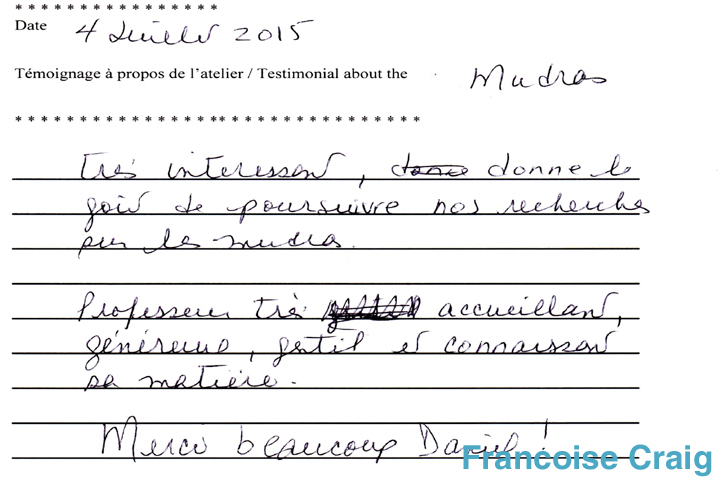 * * * * * * * * * * * * * * * *
Date 4 Juillet 2015
Témoignage à propos de l'atelier / Testimonial about the Mudras
* * * * * * * * * * * * * * * * * * * * * * * * * * * * * * * *
très interessant, donne le
goût de poursuivre nos recherches
sur les mudras.
Professeur très accueillant,
généreux, gentil et connaissant
sa matière.
Merci beaucoup Daniel !
Francoise Craig